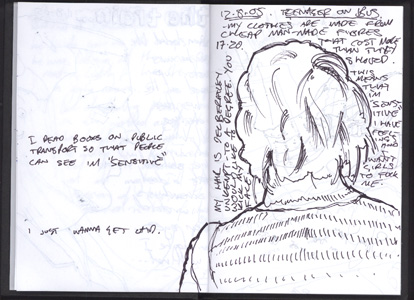 I READ BOOKS ON PUBLIC
TRANSPORT SO THAT PEOPLE
CAN SEE IM "SENSITIVE"
I JUST WANNA GET LAID.
TEENAGER ON BUS.
MY CLOTHES ARE MADE FROM
CHEAP MAN-MADE FIBRES
17.20. THAT COST MORE
THAN THEY
SHOULD.
THIS
MEANS
THAT
I'M
SENS
ITIVE
I HAVE
FEEL
INGS
AND
I
WANT
GIRLS
TO FUCK
ME.
MY HAIR IS DELIBERATELY
UNKEMPT TO A DEGREE. YOU
WOULD LIKE TO
MY
FACE